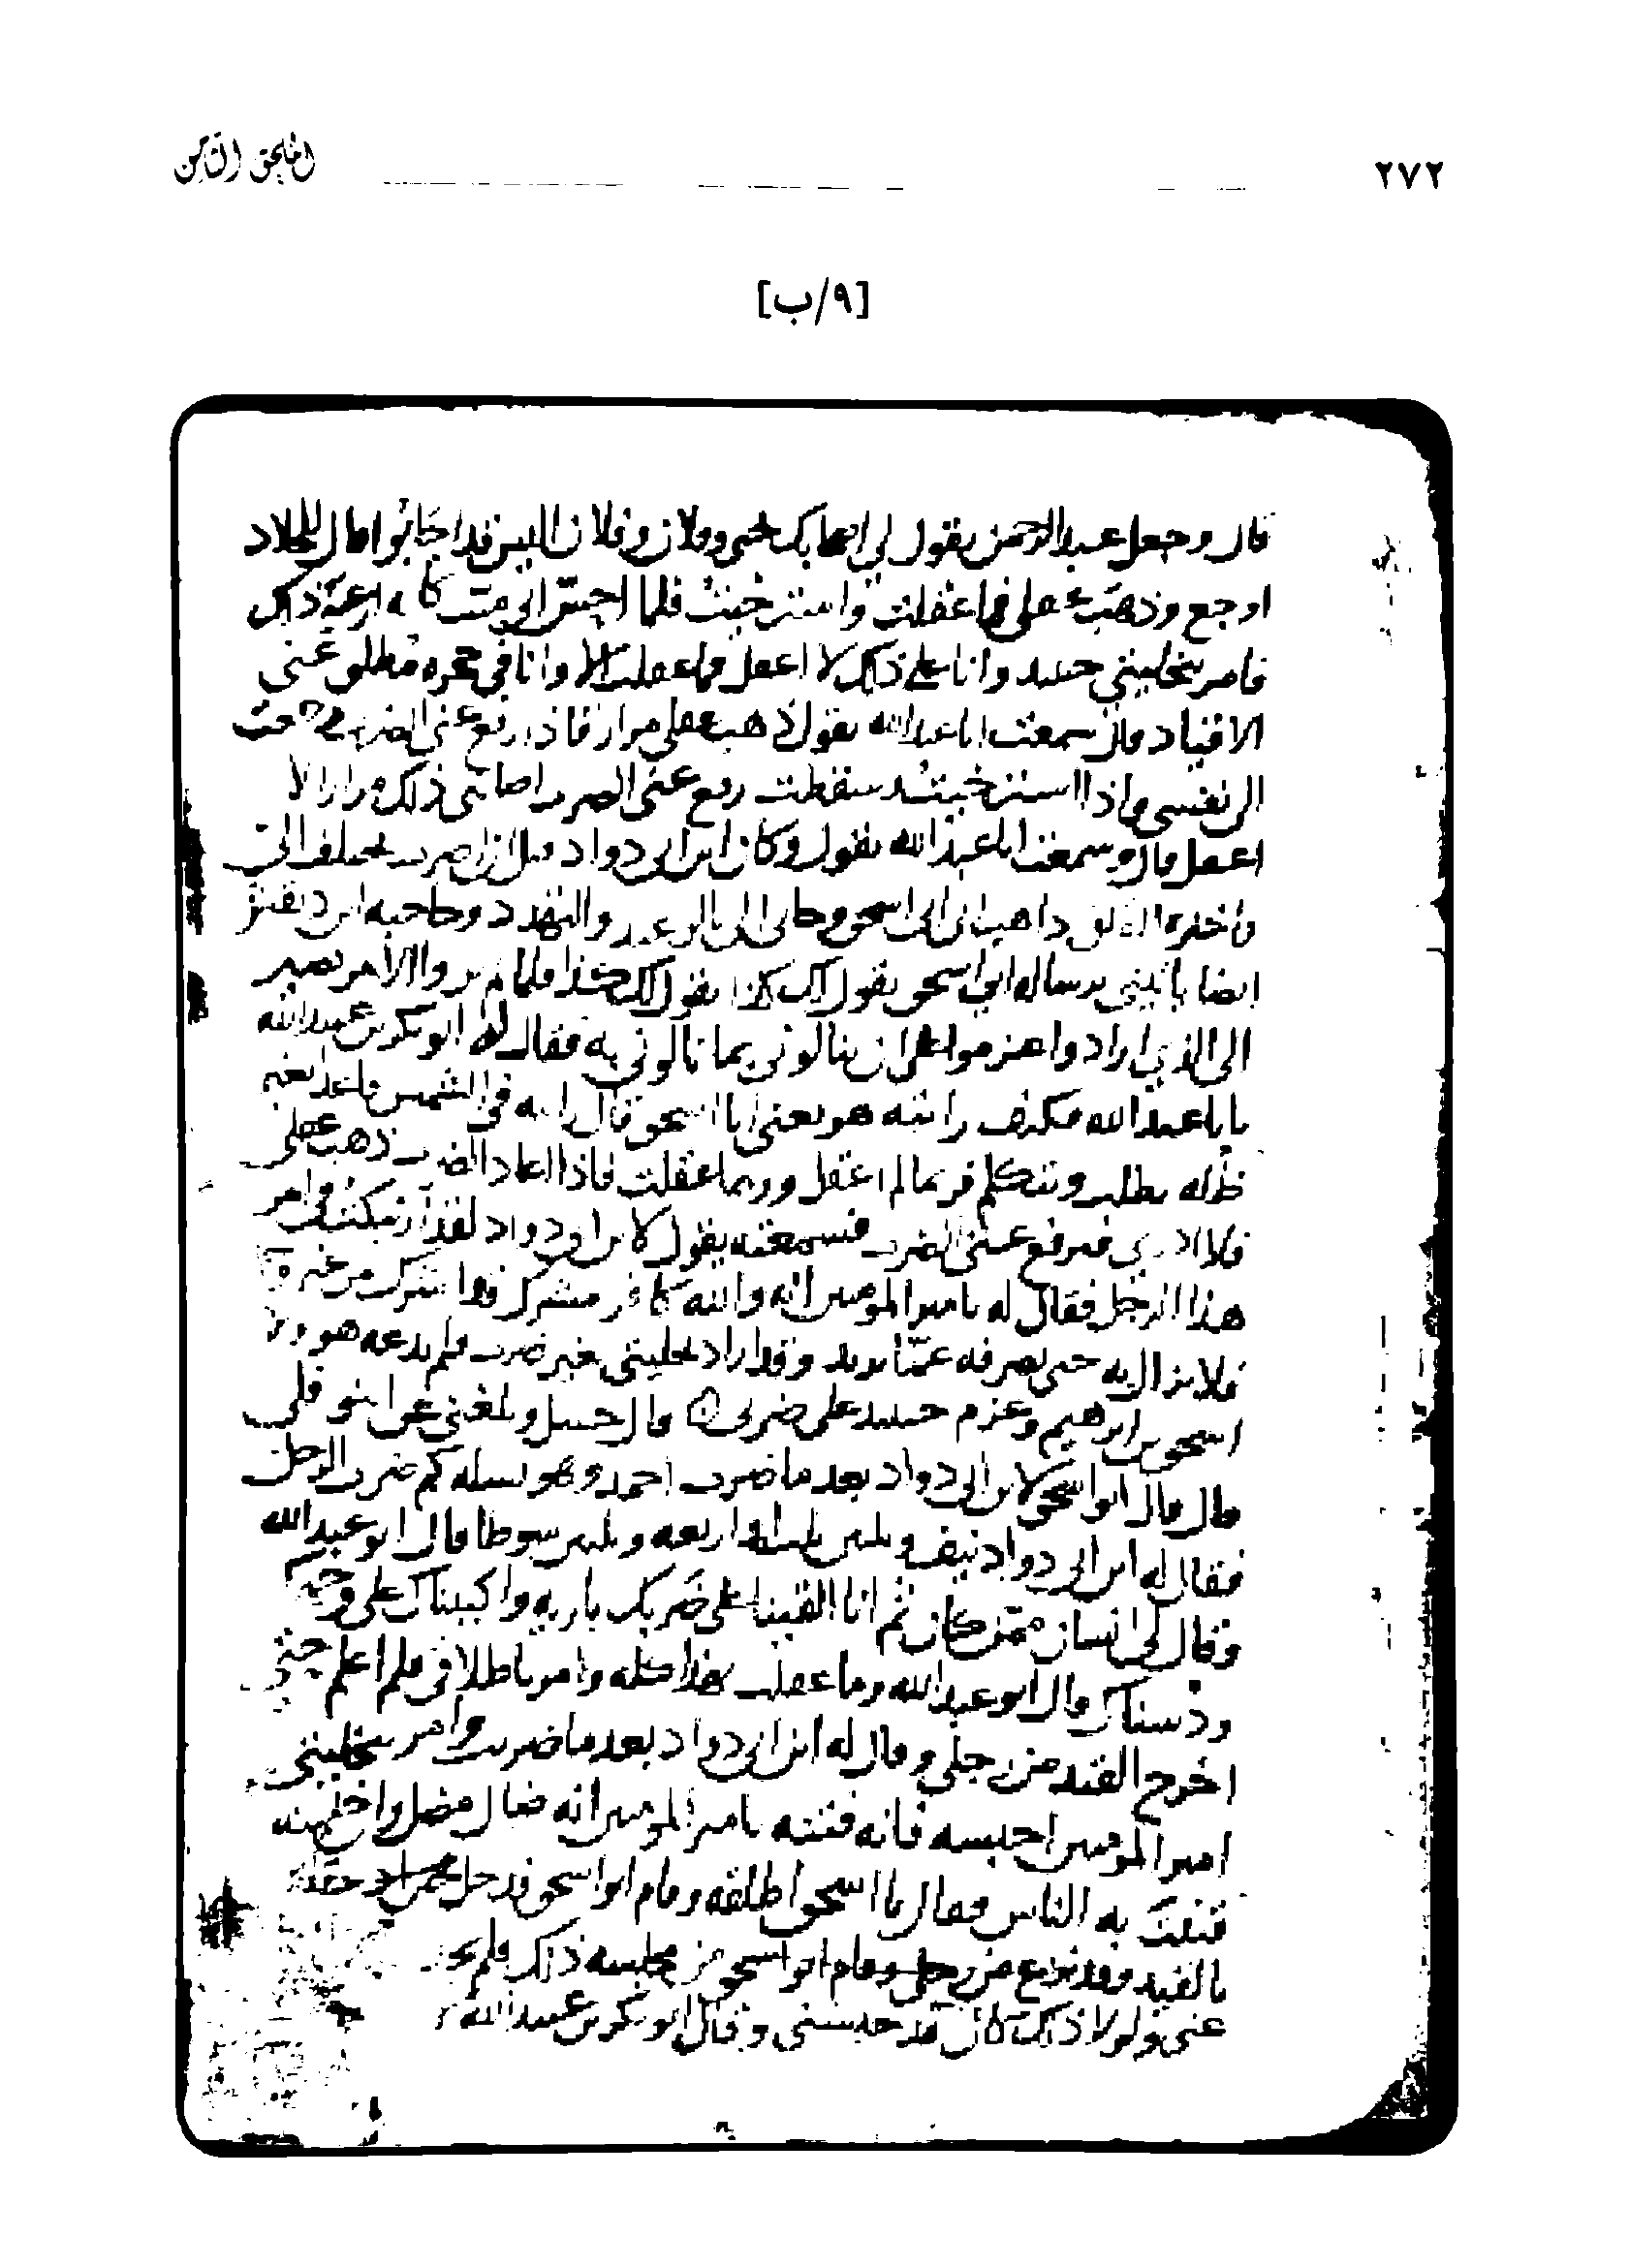 ٢٧٢
الملحق الثامن
[٩/ب]
قال وجعل عبد الرحمن يقول لي اصحابك يحيى وفلان وفلان اليس قد اجابوا قال للجلاد
اوجع وذهب عقلي فما عقلت واسترخيت فلما احس اني ميت كانه ارعبه ذلك
فامر بتخليتي حينئذ وانا على ذلك لا اعقل فما عقلت الا وانا في حجره مطلق عني
الاقياد قال سمعت ابا عبد الله يقول ذهب عقلي مرارا فاذا رفع عني الضرب رجعت
الي نفسي واذا استرخيت وسقطت رفع عني الضرب اصابني ذلك مرارا لا
اعقل قال وسمعت ابا عبد الله يقول وكان ابن ابي دواد قبل ان اضرب يختلف الي
ابي اسحق بالوعيد والتهدد وصاحبه ابن دنقش
ايضا ياتيني برساله ابي اسحق يقول لك كذا يقول لك كذا فلما لم يروا الامر يصير
الى الذي اراد واعزموا على ان ينالوني بما نالوني به فقال له ابو بكر بن عبيد الله
يابا عبد الله فكيف رايته هو يعني ابا اسحق قال رايته في الشمس قاعد بغير
ظله يطلب ويتكلم فربما لم اعقل وربما عقلت فاذا اعاد الضرب ذهب عقلي
فلا ادري فيرفع عني الضرب فسمعته يقول لابن ابي دواد لقد ارتكبت في امر
هذا الرجل فقال له يا امير المومنين انه والله كافر مشرك قد اشرك من غير
فلا يزال به حتى يصرفه عما يريد وقد اراد تخليتي بغير ضرب فلم يدعه هو ولا
اسحق بن ابرهيم وعزم حينئذ على ضربي قال حنبل وبلغني عن
قال قال ابو اسحق لابن ابي دواد بعد ما ضرب احمد وهو يسله كم ضرب الرجل
فقال له ابن ابي دواد نيف وثلثين ثلثه او اربعه وثلثين سوطا قال ابو عبد الله
وقال لي انسان ممن كان ثم انا القينا على ظهرك باريه واكببناك على وجهك
ودسناك قال ابو عبد الله وما عقلت بهذا كله وامر باطلاقي فلم اعلم حتى
اخرج القيد من رجلي وقال له ابن ابي دواد بعد ما ضربت وامر بتخليتي
امير المومنين احبسه فانه فتنه يا امير المومنين انه ضال مضل وان خليته
فتنت به الناس فقال يا اسحق اطلقه وقام ابو اسحق فدخل
بالقيد وقد نزع من رجلي وقام ابو اسحق من مجلسه ذلك فلم
عني ولولا ذلك كان قد حبسني وقال ابو بكر بن عبيد الله